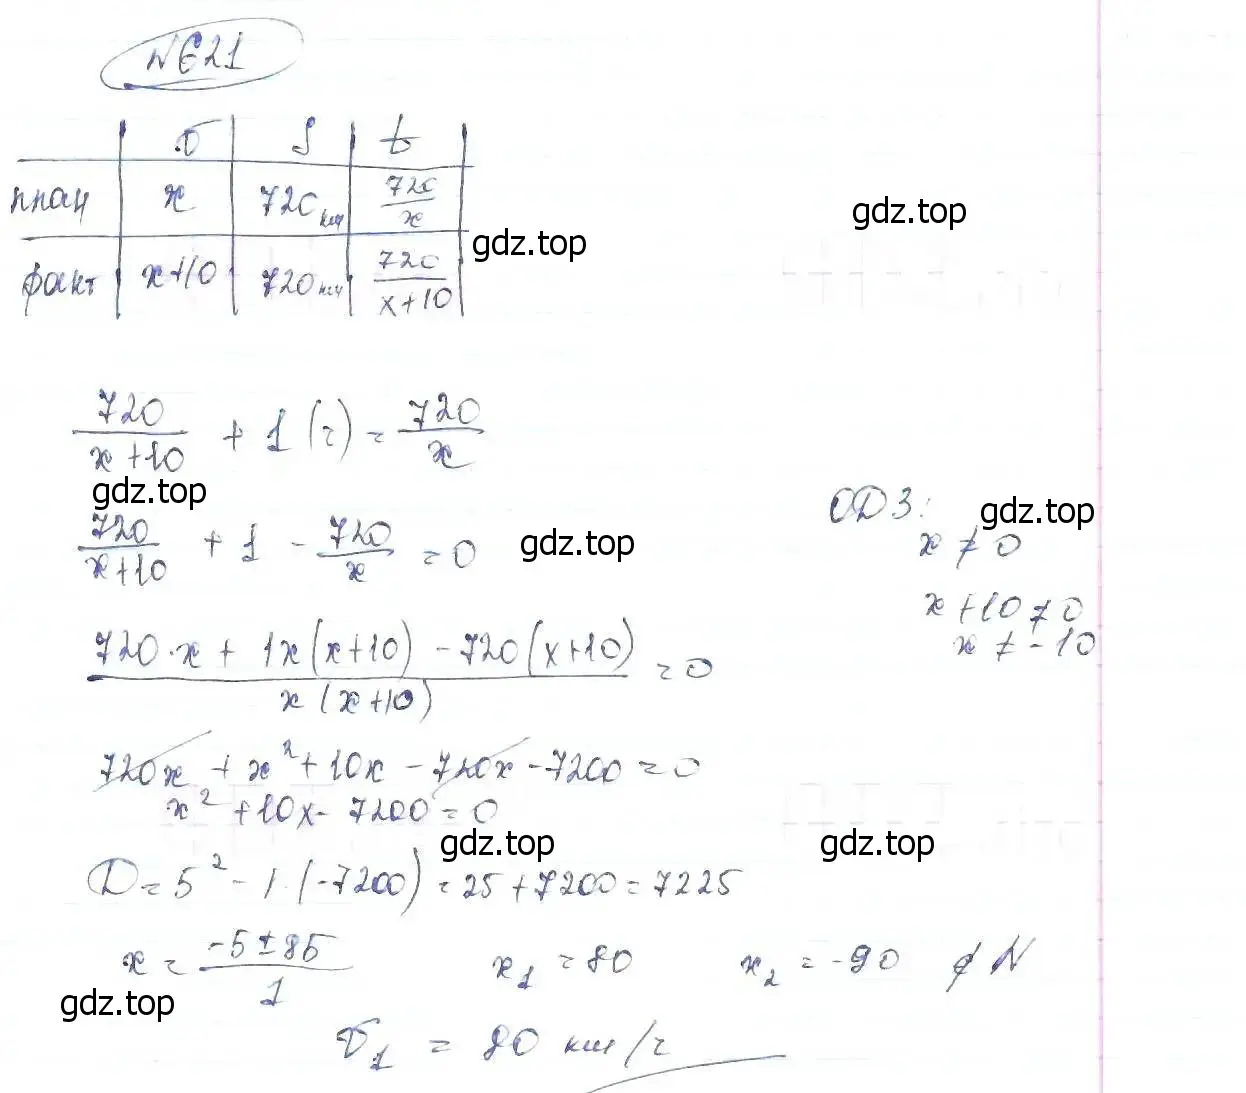 №621
v | S | t
план | x | 720 км | 720/x
факт | x+10 | 720 км | 720/(x+10)
gdz.top
gdz.top
720/(x+10) + 1 (ч) = 720/x
gdz.top
720/(x+10) + 1 - 720/x = 0
gdz.top
ОДЗ:
gdz.top
x ≠ 0
x+10 ≠ 0
x ≠ -10
(720·x + 1x(x+10) - 720(x+10))/(x(x+10)) = 0
720x + x² + 10x - 720x - 7200 = 0
x² + 10x - 7200 = 0
gdz.top
gdz.top
D = 5² - 1·(-7200) = 25 + 7200 = 7225
x = (-5 ± 85)/1 x₁ = 80 x₂ = -90 ∉ N
gdz.top
v₁ = 80 км/ч